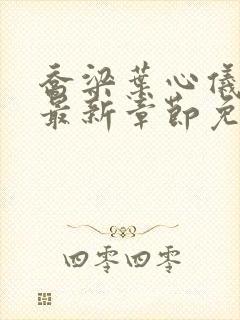 乔梁叶心仪
最新章节免
四零四零